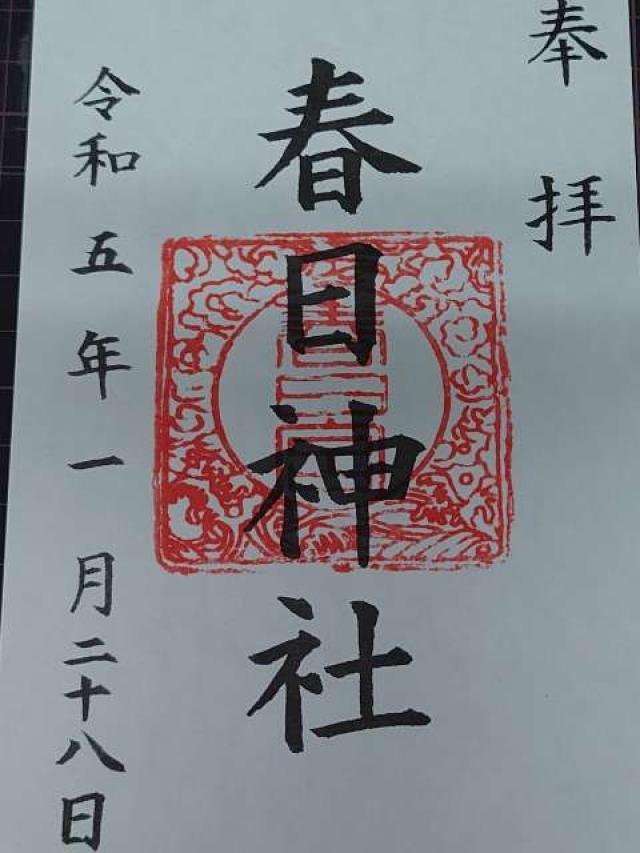 奉拝
春日神社
令和五年一月二十八日